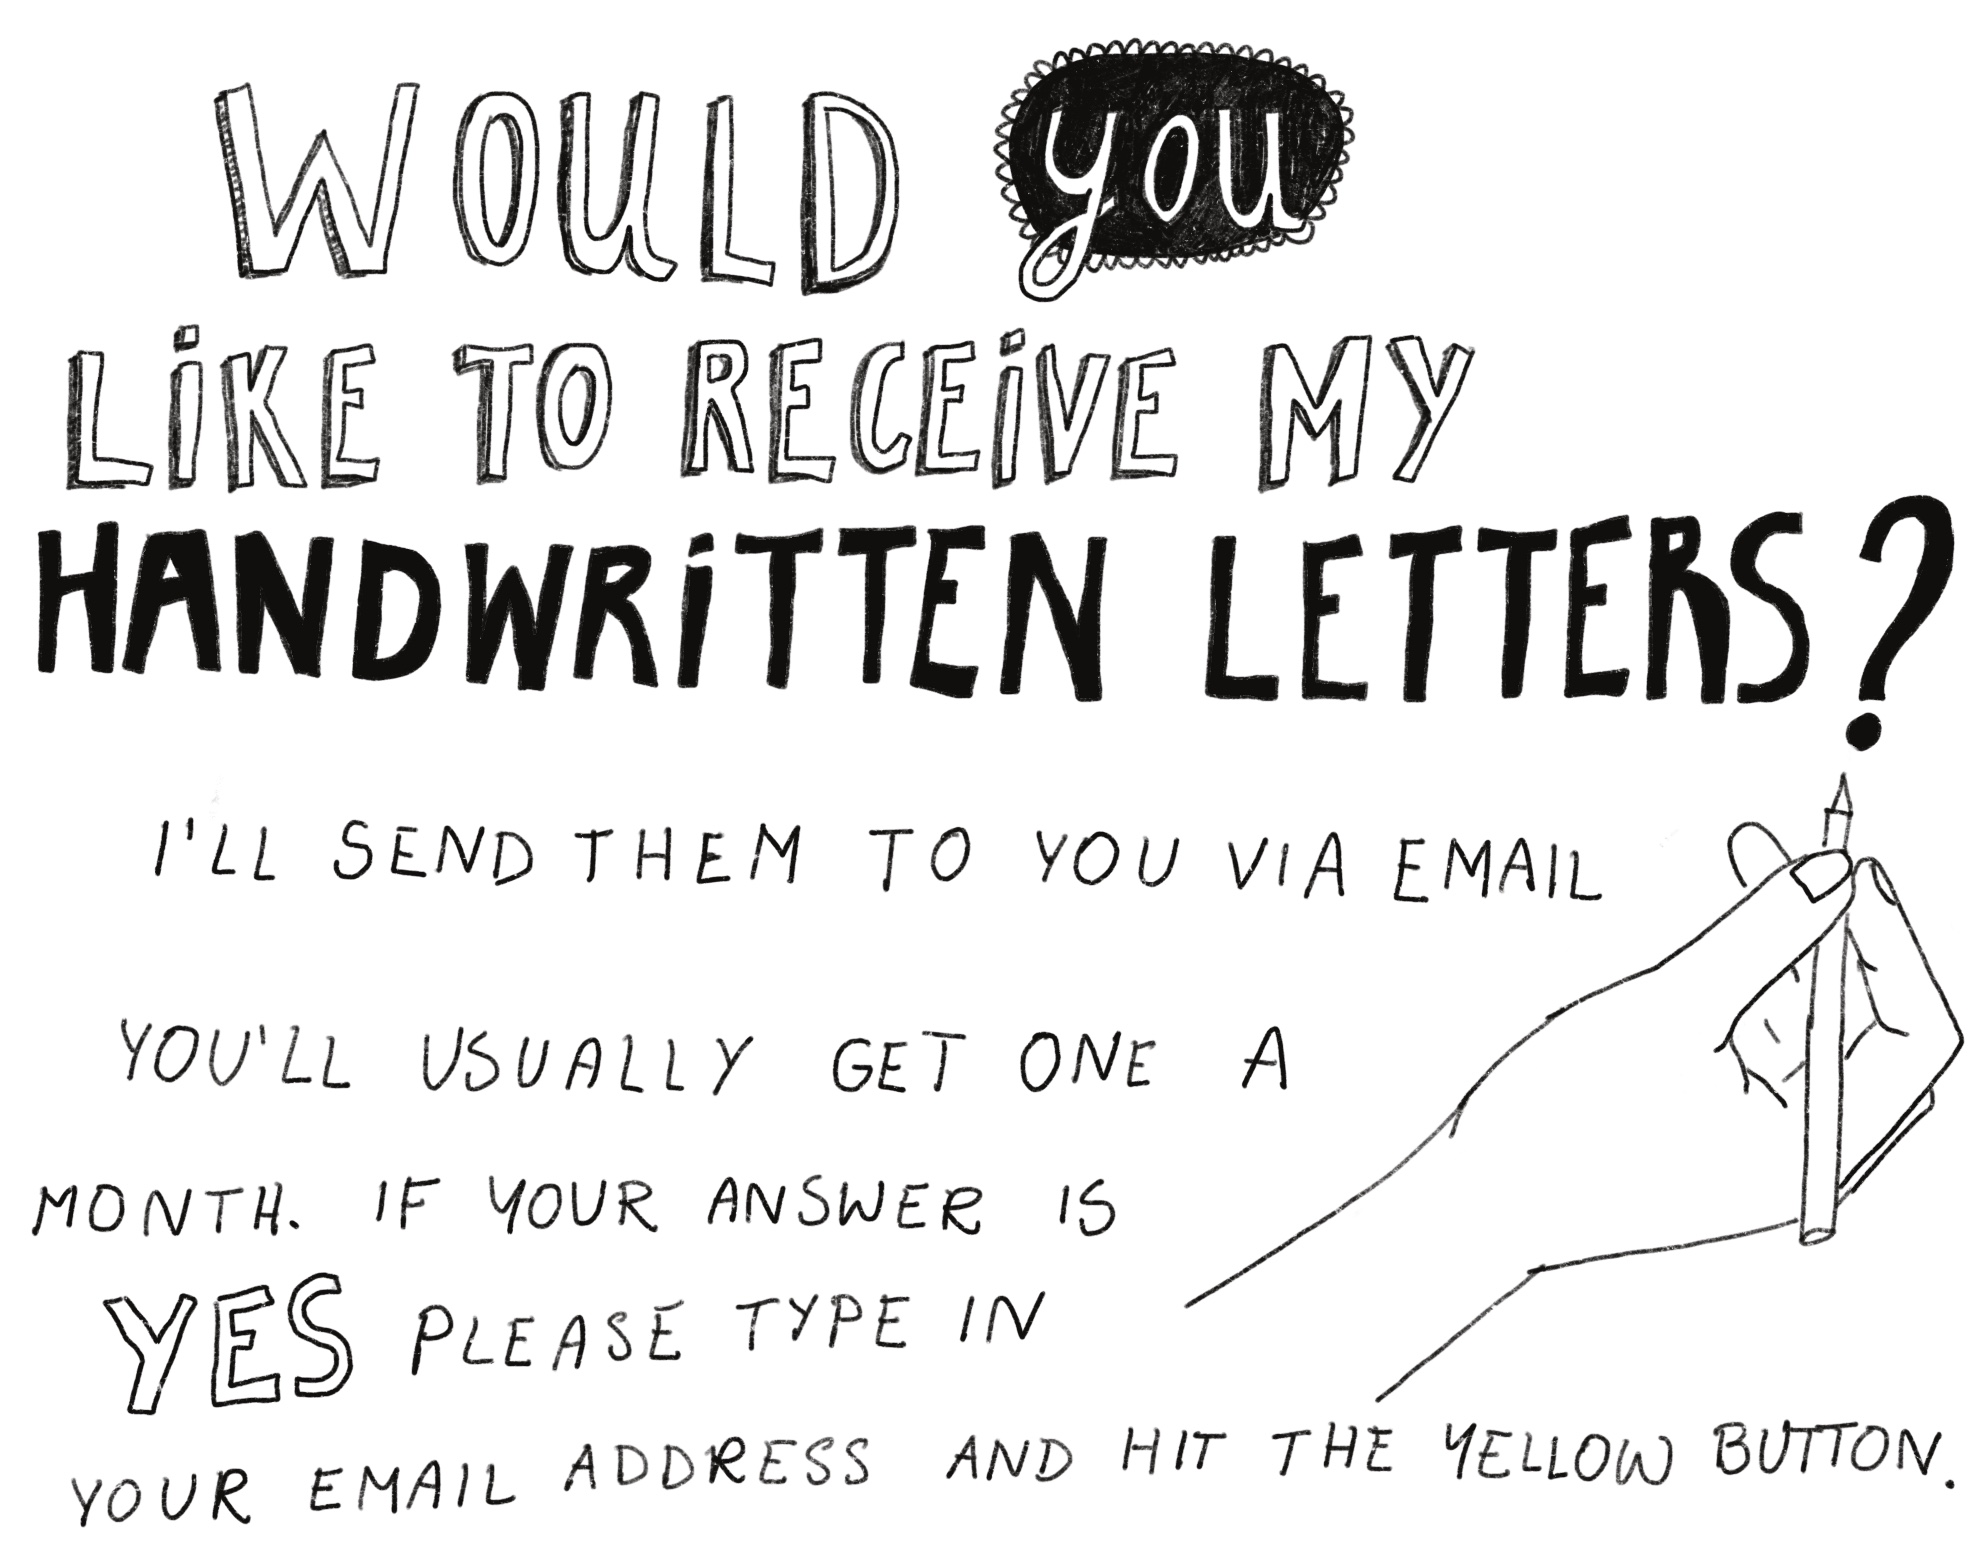 WOULD you
LiKE TO RECEiVE MY
HANDWRiTTEN LETTERS?
I'LL SEND THEM TO YOU VIA EMAIL
YOU'LL USUALLY GET ONE A
MONTH. IF YOUR ANSWER IS
YES PLEASE TYPE IN
YOUR EMAIL ADDRESS AND HIT THE YELLOW BUTTON.